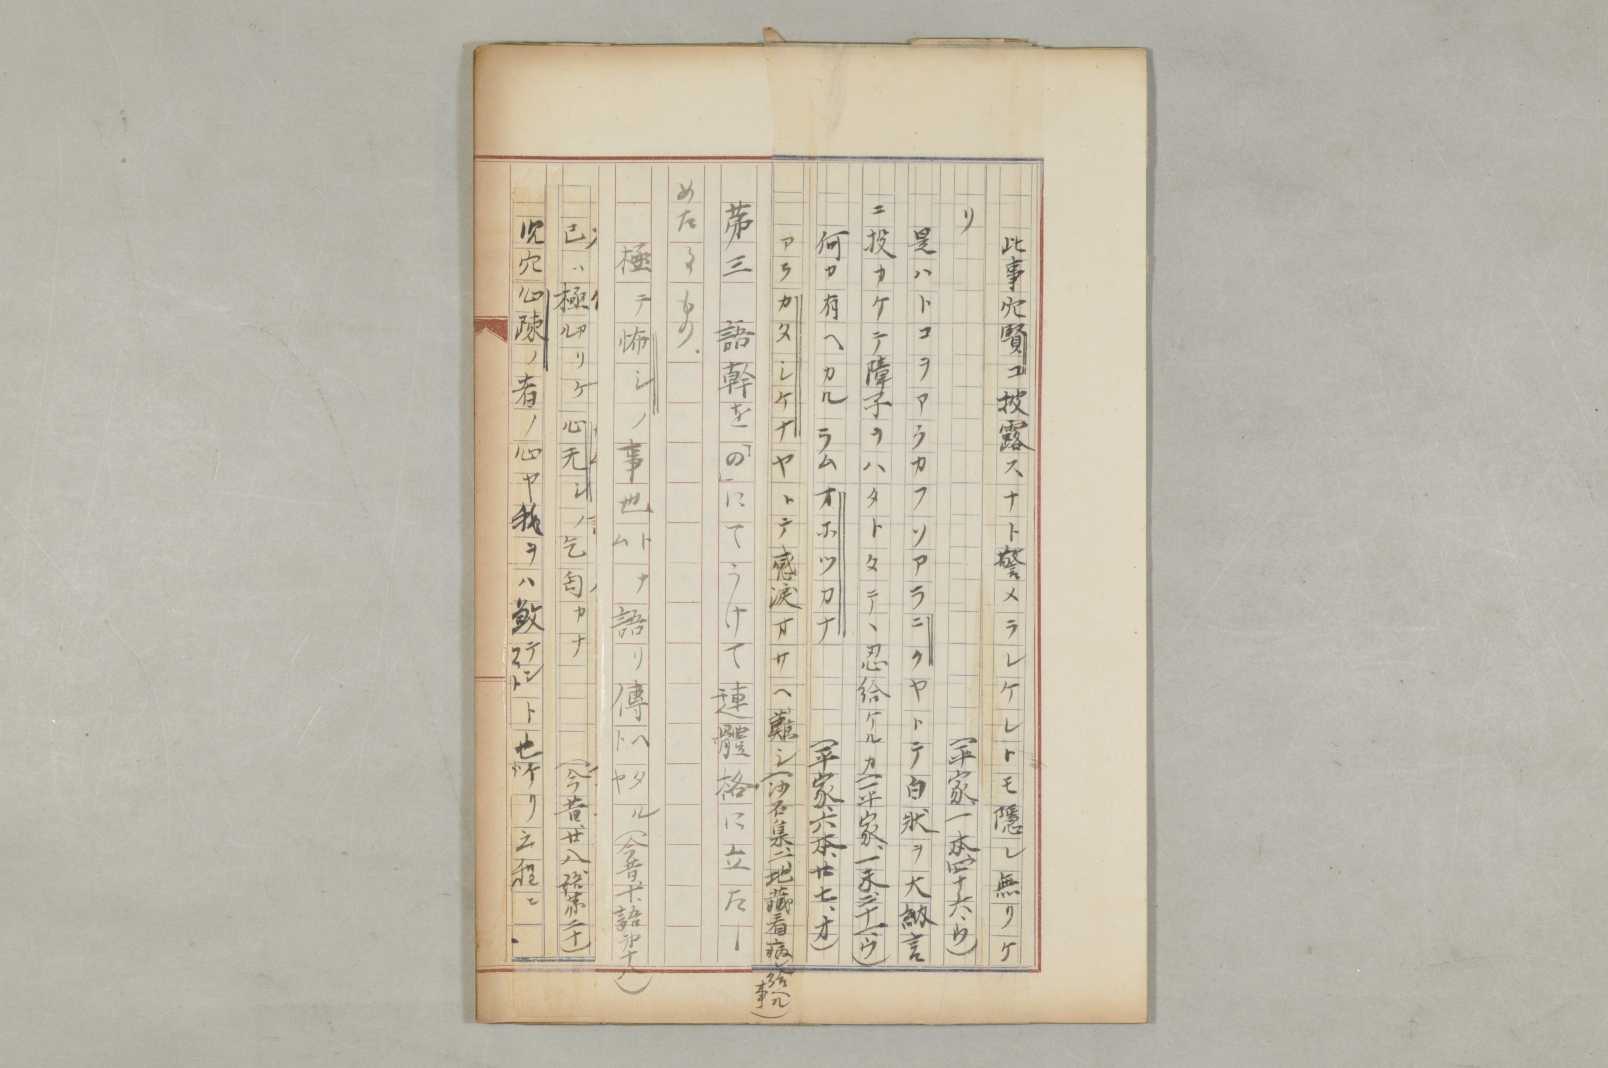 此事穴賢コ披露スナト警メラレケレトモ隠レ無リケ
リ　（平家、一本、四十六、ウ）
是ハトコヲアラカフソアラニクヤトテ白状ヲ大納言
ニ投カケテ障子ヲハタトタテヽ忍給ケルカ（平家、一末、二十一、ウ）
何カ有ヘカルラムオホツカナ　（平家、六本、廿七、オ）
アラカタシケナヤトテ感涙オサヘ難シ（沙石集、二、地蔵看病シ給ヘル事）
第三　語幹を「の」にてうけて連體格に立たし
めたるもの.
極テ怖シノ事也トナム語リ傳ヘタルトヤ（今昔、廿、語第十八）
已ハ極カリケ心无シノ乞匃カナ　（今昔、廿八、語第二十）
穴心疎ノ者ノ心ヤ我ヲハ敵テント也ケリ云程ニ